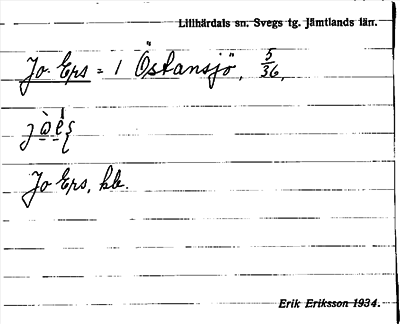 Lillhärdals sn. Svegs tg. Jämtlands län.
Jo. Ers = 1 Östansjö, 5/36,
Jo Ers, hb.
Erik Eriksson 1934.